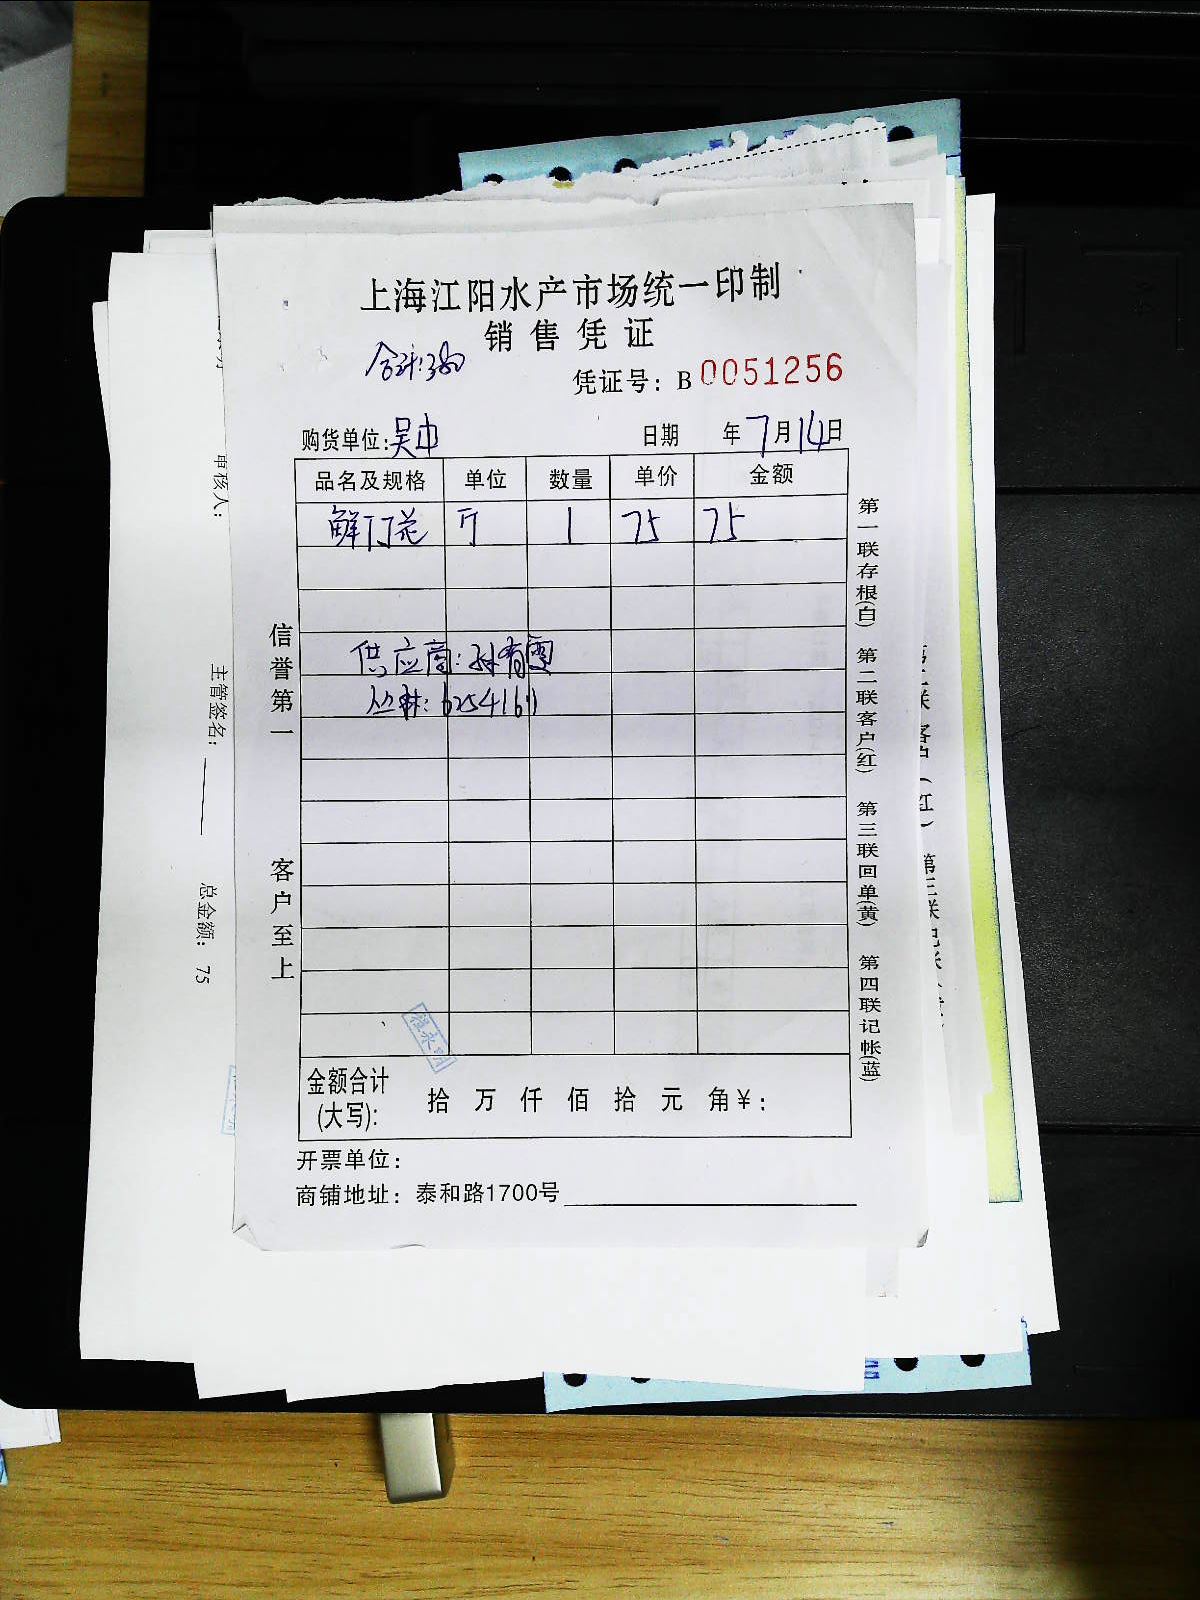 上海江阳水产市场统一印制
销售凭证
合计:380
凭证号：B 0051256
购货单位:吴中 日期 年7月14日
品名及规格 单位 数量 单价 金额
鲜丁丁花 斤 1 75 75
供应商:孙有雪
丛林:6254161
信誉第一 客户至上
第一联存根(白) 第二联客户(红) 第三联回单(黄) 第四联记帐(蓝)
程永明
金额合计
(大写): 拾 万 仟 佰 拾 元 角 ¥:
开票单位：
商铺地址：泰和路1700号
审核人：
主管签名：
总金额：75